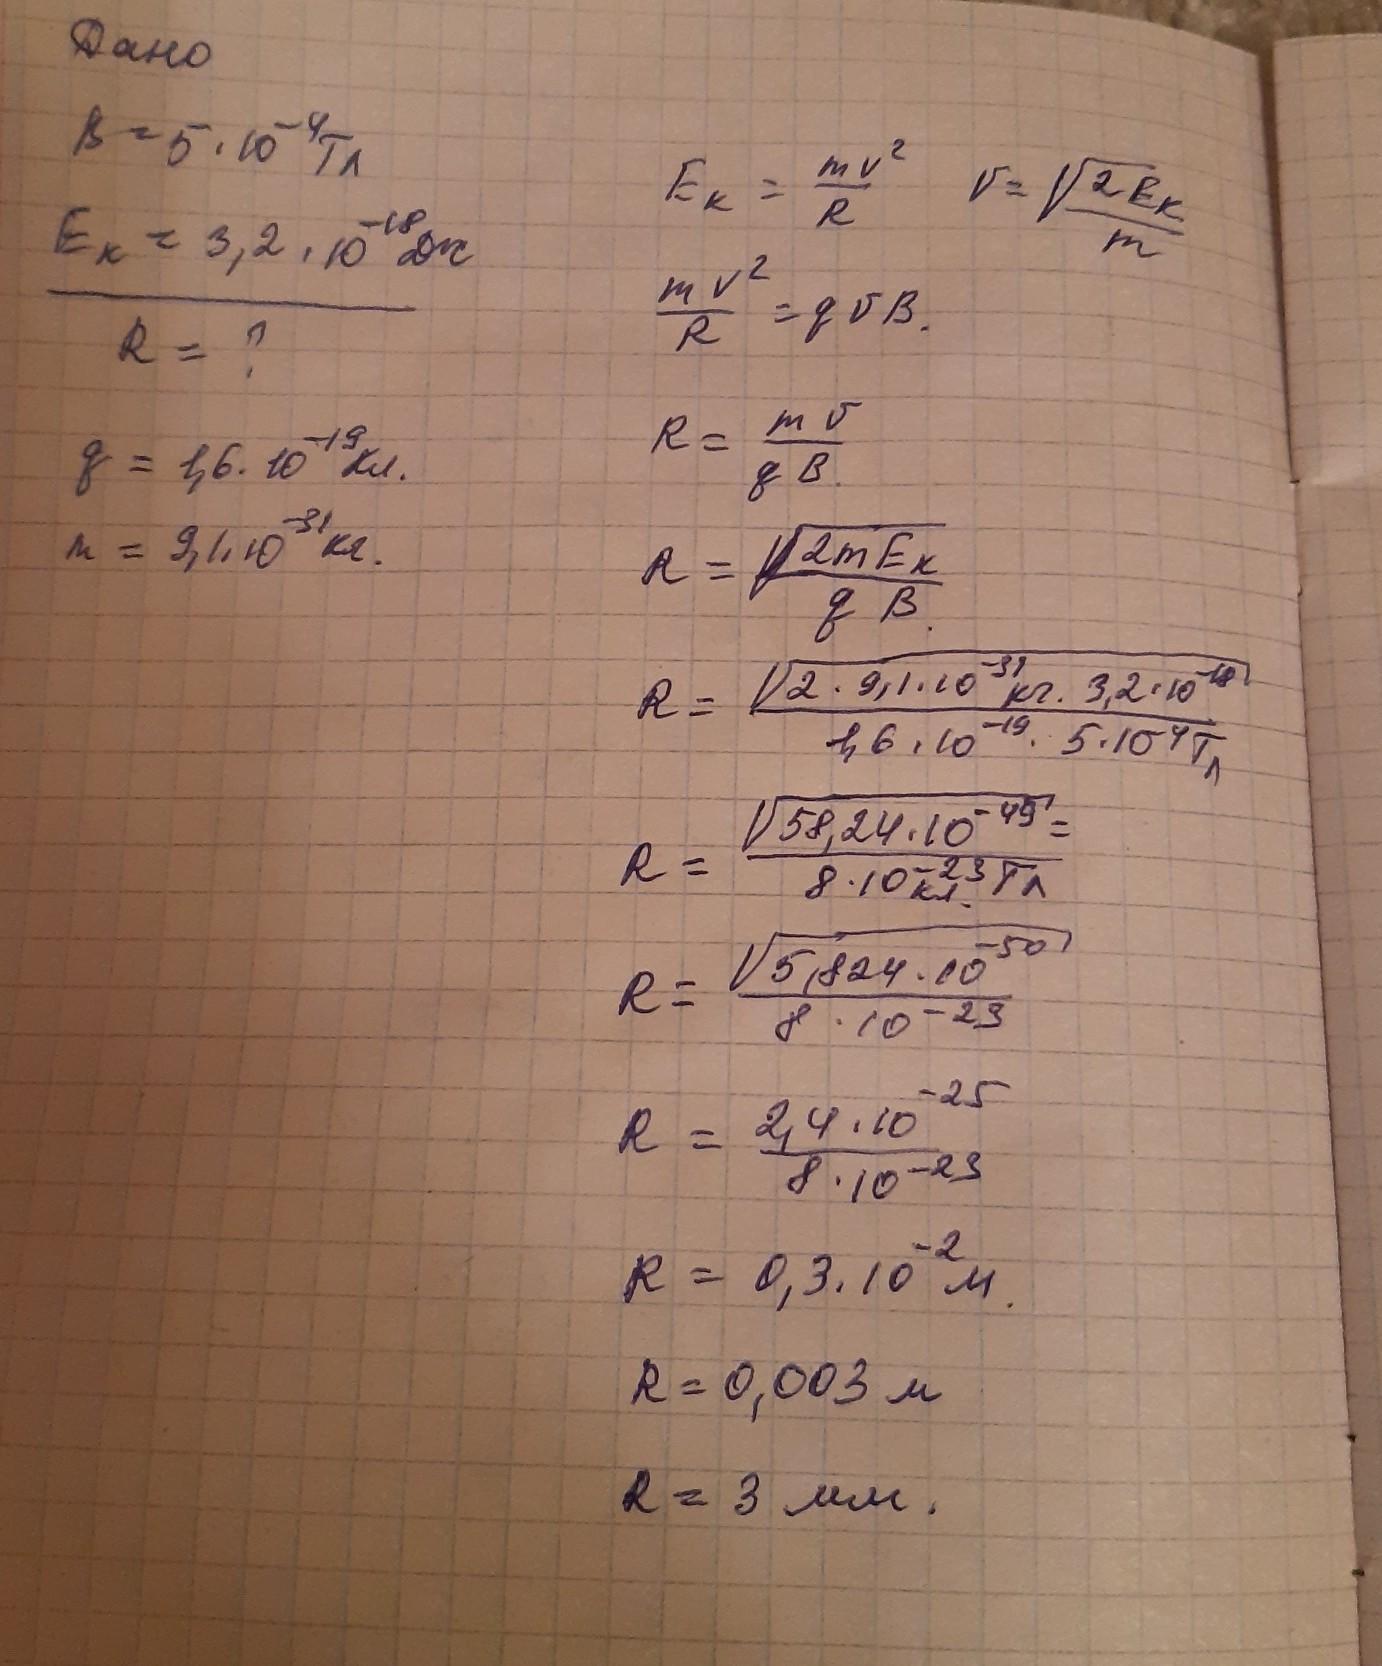 Дано
B = 5·10⁻⁴Тл
Eк = 3,2·10⁻¹⁸Дж
R = ?
q = 1,6·10⁻¹⁹Кл.
m = 9,1·10⁻³¹кг.
Eк = mv²/R   v = √2Eк/m
mv²/R = qvB.
R = mv/qB.
R = √2mEк/qB.
R = √2·9,1·10⁻³¹кг·3,2·10⁻¹⁸/1,6·10⁻¹⁹·5·10⁻⁴Тл
R = √58,24·10⁻⁴⁹/8·10⁻²³кл.Тл =
R = √5,824·10⁻⁵⁰/8·10⁻²³
R = 2,4·10⁻²⁵/8·10⁻²³
R = 0,3·10⁻²м.
R = 0,003 м
R = 3 мм.